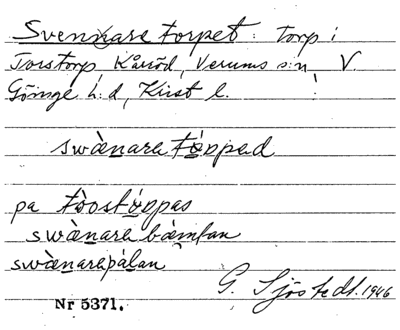 Svennaretorpet: torp i
Torstorp, Kåröd, Verums s:n V.
Göinge h:d, Krist l.
swànaretǿppəd
pa tòostǿppas
swànara bàmlan
swànarepàlan
G. Sjöstedt. 1946
Nr 5371.